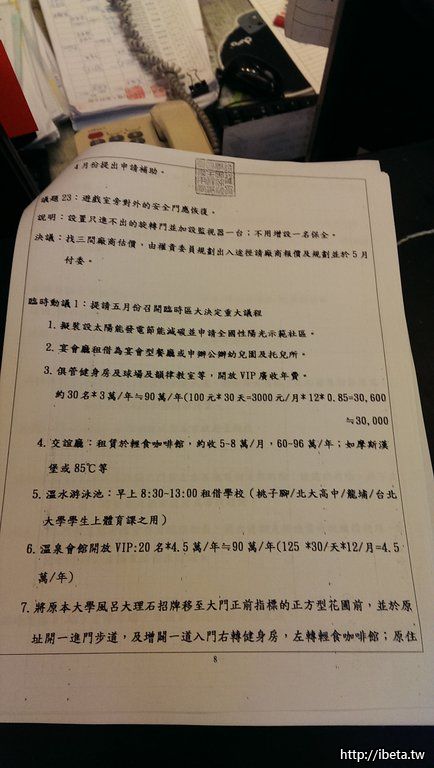 4月份提出申請補助。
議題23：遊戲室旁對外的安全門應恢復。
說明：設置只進不出的旋轉門並加設監視器一台；不用增設一名保全。
決議：找三間廠商估價，由權責委員規劃出入途徑請廠商報價及規劃並於5月
付委。
臨時動議1：提請五月份召開臨時區大決定重大議程
1. 擬裝設太陽能發電節能減碳並申請全國性陽光示範社區。
2. 宴會廳租借為宴會型餐廳或申辦公辦幼兒園及托兒所。
3. 俱管健身房及球場及韻律教室等，開放VIP廣收年費。
約30名*3萬/年≒90萬/年(100元*30天=3000元/月*12*0.85=30,600
≒30,000
4. 交誼廳：租賃於輕食咖啡館，約收5-8萬/月，60-96萬/年；如摩斯漢
堡或85℃等
5. 溫水游泳池：早上8:30-13:00租借學校（桃子腳/北大高中/龍埔/台北
大學學生上體育課之用）
6. 溫泉會館開放VIP:20名*4.5萬/年≒90萬/年(125 *30/天*12/月=4.5
萬/年)
7. 將原本大學風呂大理石招牌移至大門正前指標的正方型花圃前，並於原
址開一進門步道，及增闢一道入門右轉健身房，左轉輕食咖啡館；原住
8
http://ibeta.tw